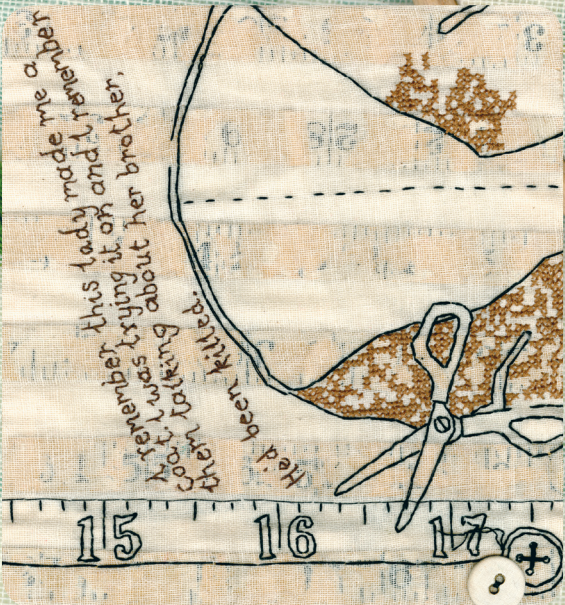 I remember this lady made me a
coat. I was trying it on and I remember
them talking about her brother,
He'd been killed.
15 16 17
3